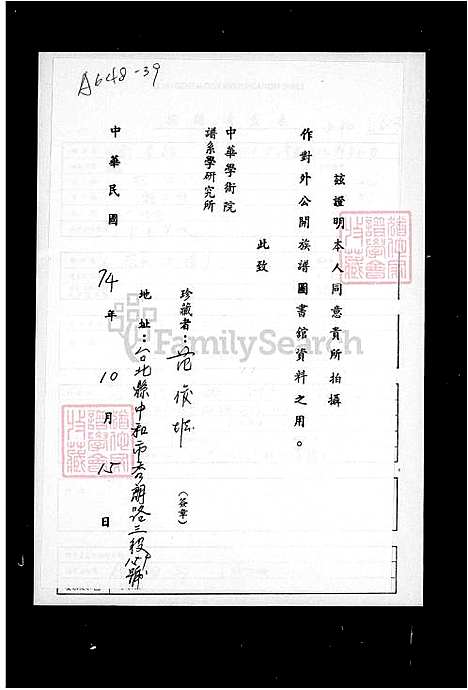 A648-39
茲證明本人同意貴所拍攝
作對外公開族譜圖書館資料之用。
此致
中華學術院
譜系學研究所
珍藏者：范俊雄
(簽章)
地址：台北縣中和市秀朗路三段15號
中華民國74年10月15日
FamilySearch